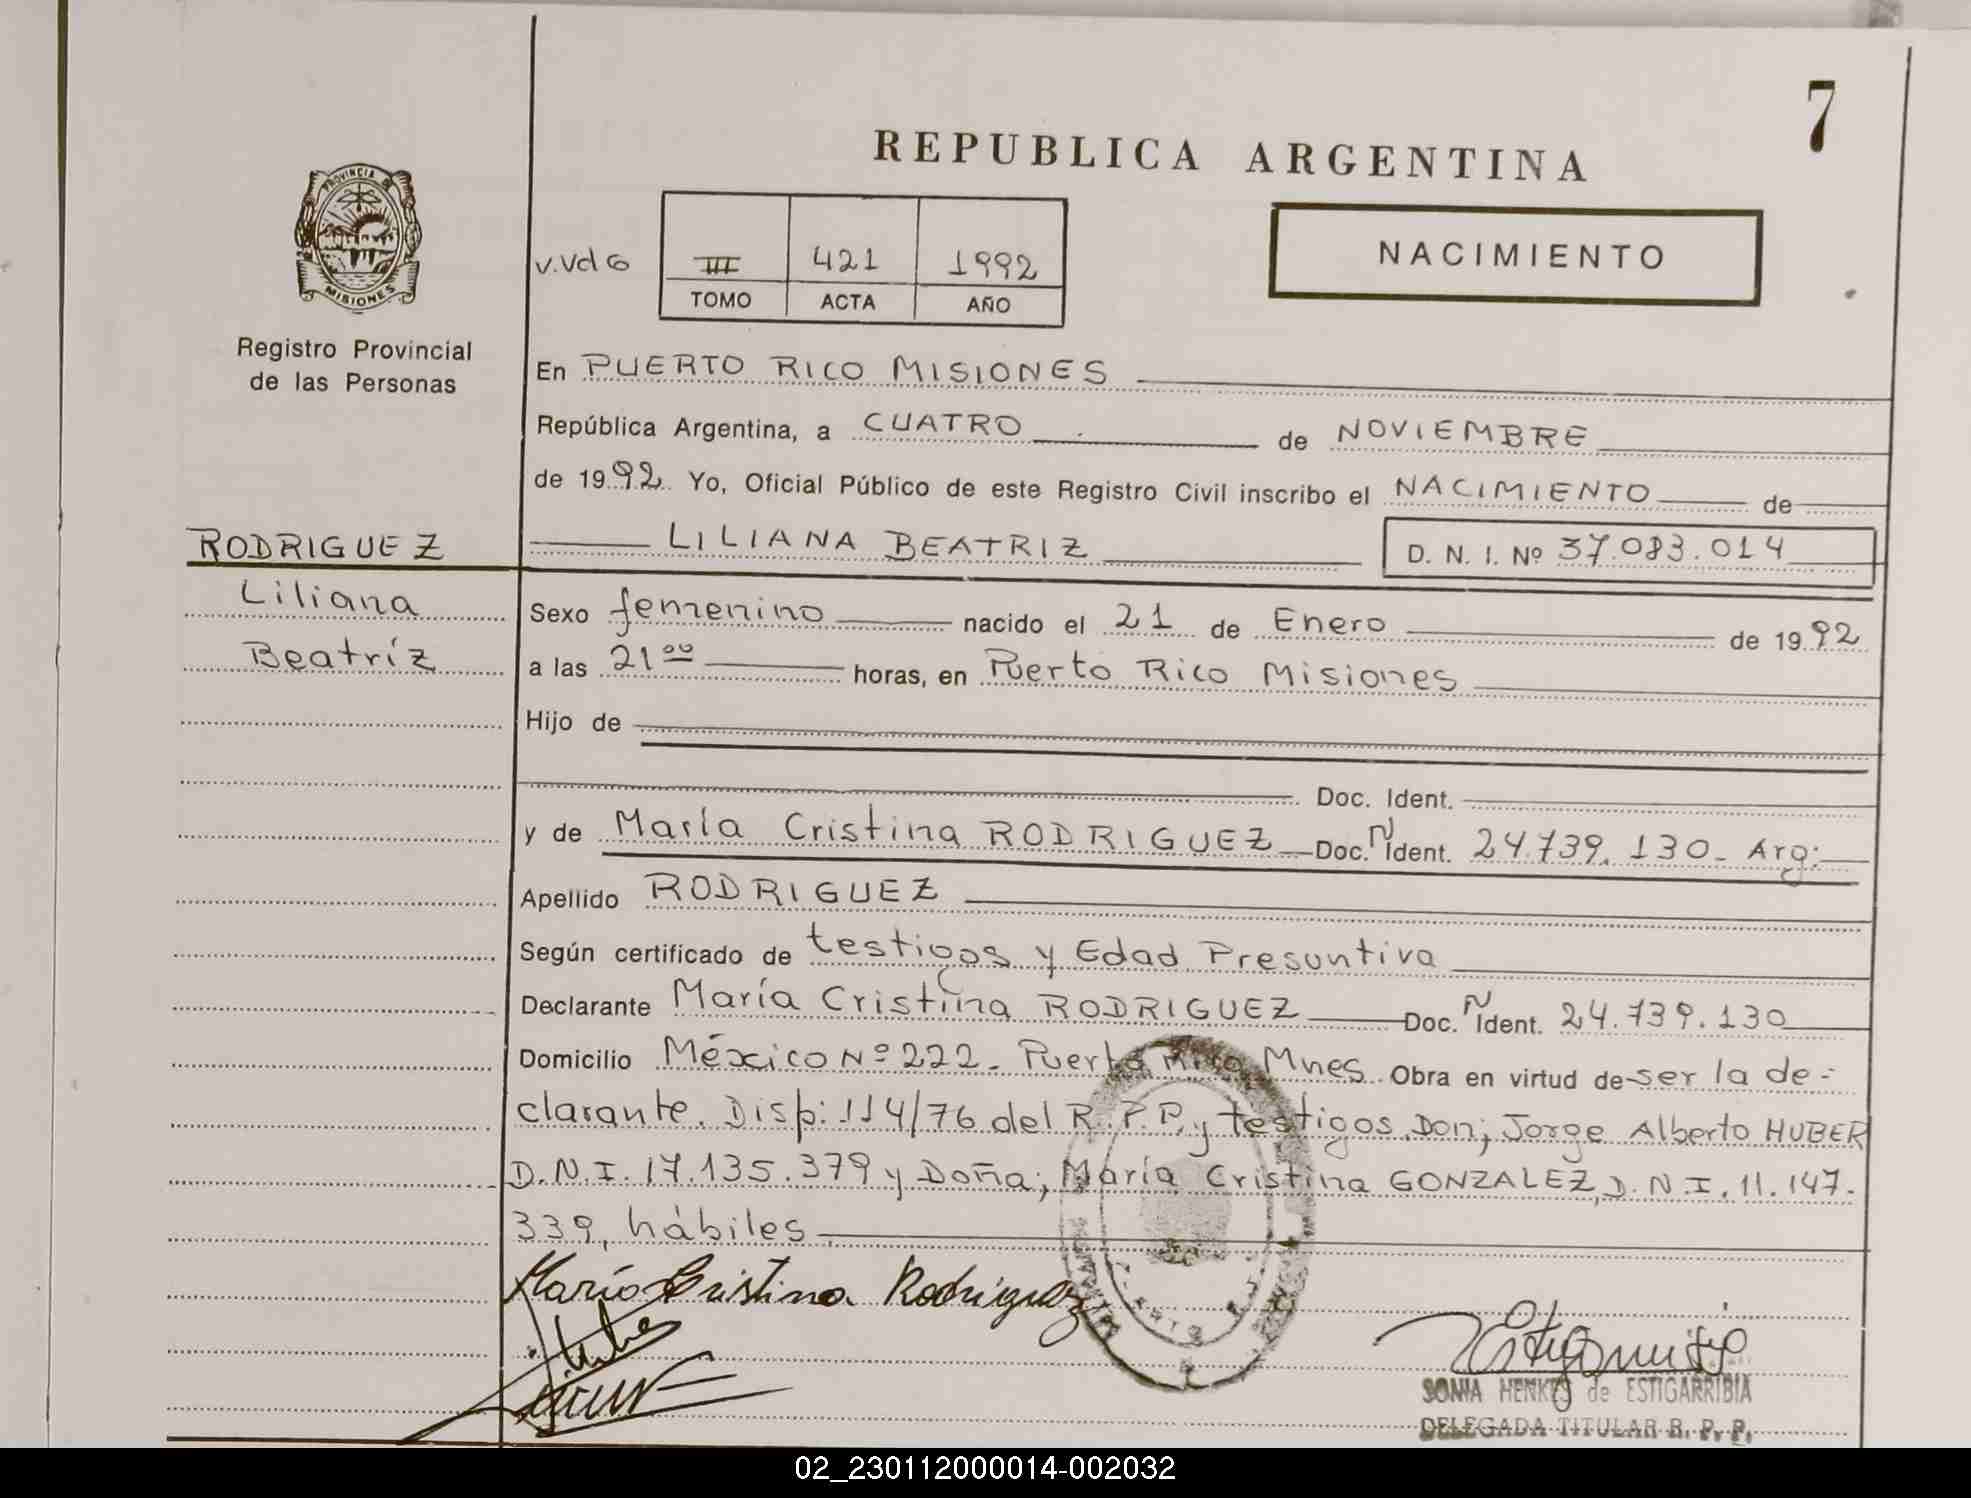 7
REPUBLICA ARGENTINA
PROVINCIA DE
MISIONES
Registro Provincial
de las Personas
NACIMIENTO
v.vdG
III 421 1992
TOMO ACTA AÑO
En PUERTO RICO MISIONES
República Argentina, a CUATRO de NOVIEMBRE
de 1992. Yo, Oficial Público de este Registro Civil inscribo el NACIMIENTO de
RODRIGUEZ
LILIANA BEATRIZ D. N. I. Nº 37.083.014
Liliana
Beatríz
Sexo femenino nacido el 21 de Enero de 1992
a las 21 00 horas, en Puerto Rico Misiones
Hijo de
Doc. Ident.
y de María Cristina RODRIGUEZ Doc. N Ident. 24.739.130- Arg:
Apellido RODRIGUEZ
Según certificado de testigos y Edad Presuntiva
Declarante María Cristina RODRIGUEZ Doc. N Ident. 24.739.130
Domicilio México Nº 222- Puerto Rico Mnes. Obra en virtud de ser la de-
clarante. Disp: 114/76 del R.P.P. y testigos Don; Jorge Alberto HUBER
D.N.I. 17.135.379 y Doña; María Cristina GONZALEZ, D.N.I. 11.147.
339, hábiles
María Cristina Rodriguez
SONIA HENKES de ESTIGARRIBIA
DELEGADA TITULAR R. P. P.
02_230112000014-002032